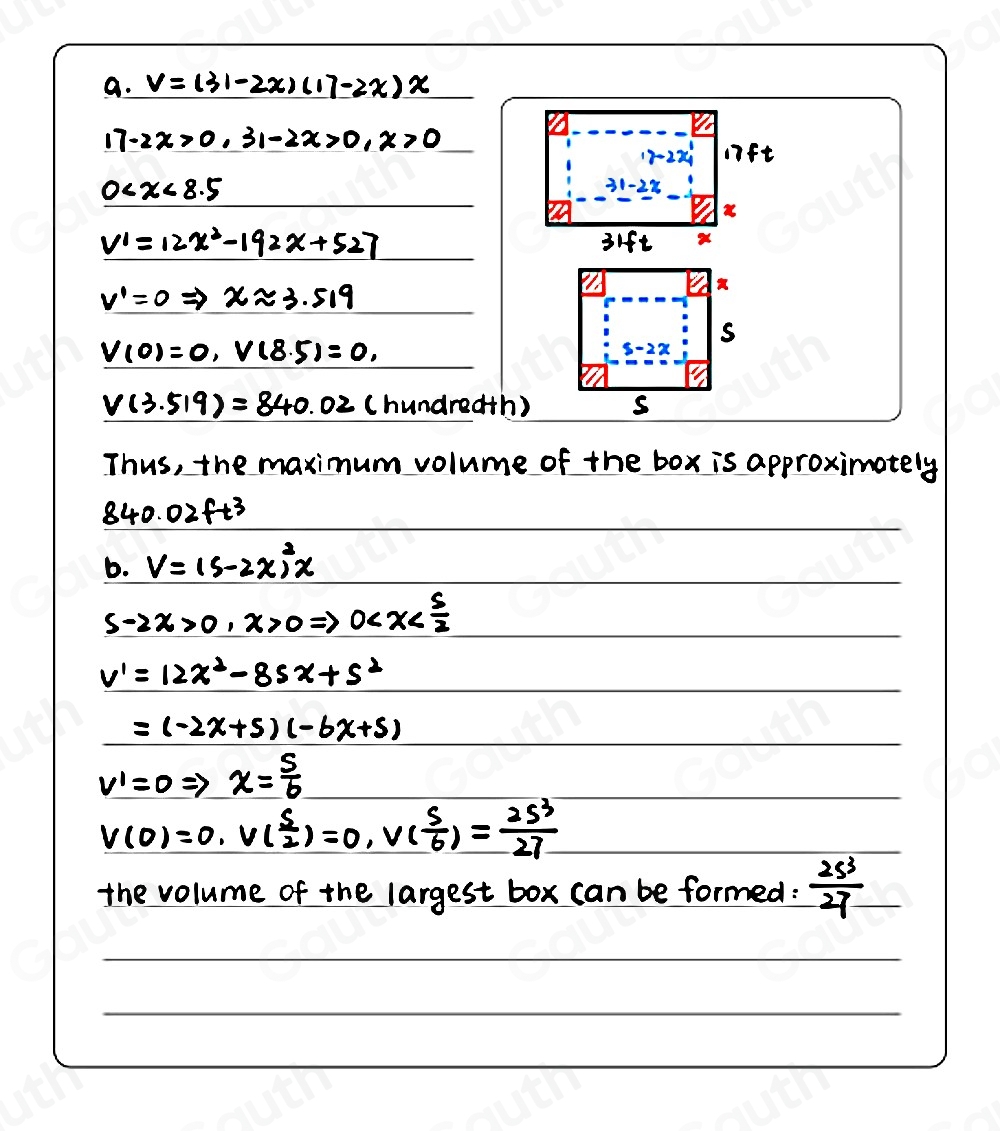 a. V=(31-2x)(17-2x)x
17-2x>0, 31-2x>0, x>0
0<x<8.5
V'=12x²-192x+527
V'=0 ⇒ x≈3.519
V(0)=0, V(8.5)=0,
V(3.519)=840.02 (hundredth)
17-2x
17ft
31-2x
x
31ft
x
x
S
S-2x
S
Thus, the maximum volume of the box is approximately
840.02ft³
b. V=(S-2x)²x
S-2x>0, x>0 ⇒ 0<x<S/2
V'=12x²-8Sx+S²
=(-2x+S)(-6x+S)
V'=0 ⇒ x=S/6
V(0)=0. V(S/2)=0, V(S/6)=2S³/27
the volume of the largest box can be formed: 2S³/27
Gauth